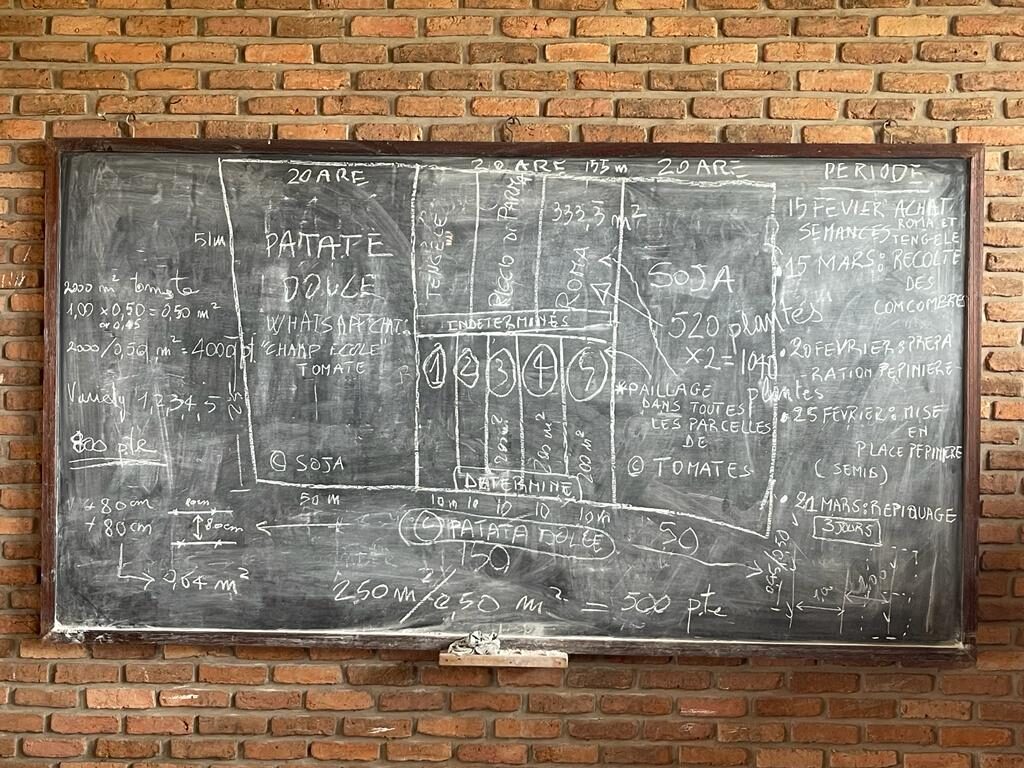 20 ARE
20 ARE
155 m
20 ARE
51m
PATATE
DOUCE
WHATSAPP CHAT
"CHAMP ECOLE"
TOMATE
© SOJA
50 m
2000 m² tomate
1,00 x 0,50 = 0,50 m²
or 0,45
2000/0,50 m² = 4000 pt
Variety 1,2,3,4,5
800 pte
+ 80cm
+ 80cm
80cm
80cm
0,64 m²
TENGÉLÉ
RICCIO DI PARMA
ROMA
333,3 m²
INDETERMINÉS
1
2
3
4
5
200 m²
200 m²
200 m²
DETERMINÉ
10m
10
10
10
10m
© PATATA DOLCE
150
50
250 m²/0,50 m² = 500 pte
SOJA
520 plantes
x2 = 1040
plantes
*PAILLAGE
DANS TOUTES
LES PARCELLES
DE
© TOMATES
PERIODE
15 FEVIER ACHAT
SEMANCES ROMA ET
TENGELE
15 MARS: RECOLTE
DES
COMCOMBRE
• 20 FEVRIER: PREPA
-RATION PEPINIERE
• 25 FEVRIER: MISE
EN
PLACE PEPINIERE
(SEMIS)
• 21 MARS: REPIQUAGE
3 JOURS
0,45/0,50
1,00
1,00